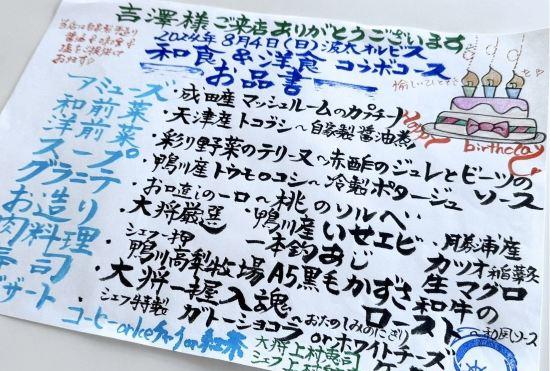 吉澤様ご来店ありがとうございます
2024年8月4日(日)波太オルビス
和食&洋食コラボコース
お品書
Happy
birthday
アミューズ ・成田産マッシュルームのカプチーノ
和前菜 ・天津産トコブシ~自家製醤油煮
洋前菜 ・彩り野菜のテリーヌ~赤酢のジュレとビーツのソース
スープ ・鴨川産トウモロコシ~冷製ポタージュ
グラニテ ・お口直しの一口~桃のソルベ
お造り ・大将厳選 鴨川産いせエビ 一本釣あじ 勝浦産カツオ 生マグロ
肉料理 ・シェフ一押 鴨川高梨牧場A5黒毛かずさ和牛のロースト~和風ソース
寿司 ・大将一握入魂~おたのしみのにぎり
デザート ・シェフ特製 ガトーショコラorホワイトチーズ
コーヒーorアイスティーor紅茶
大将上村
シェフ上村